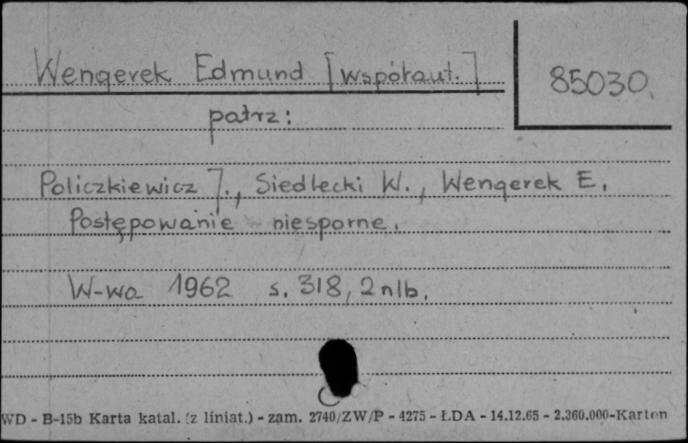 Wengerek Edmund [współaut.]
85030.
patrz:
Policzkiewicz J., Siedlecki W., Wengerek E.
Postępowanie niesporne.
W-wa 1962 s. 318, 2 nlb.
WD - B-15b Karta katal. (z liniat.) - zam. 2740/ZW/P - 4275 - ŁDA - 14.12.65 - 2.360.000-Karton